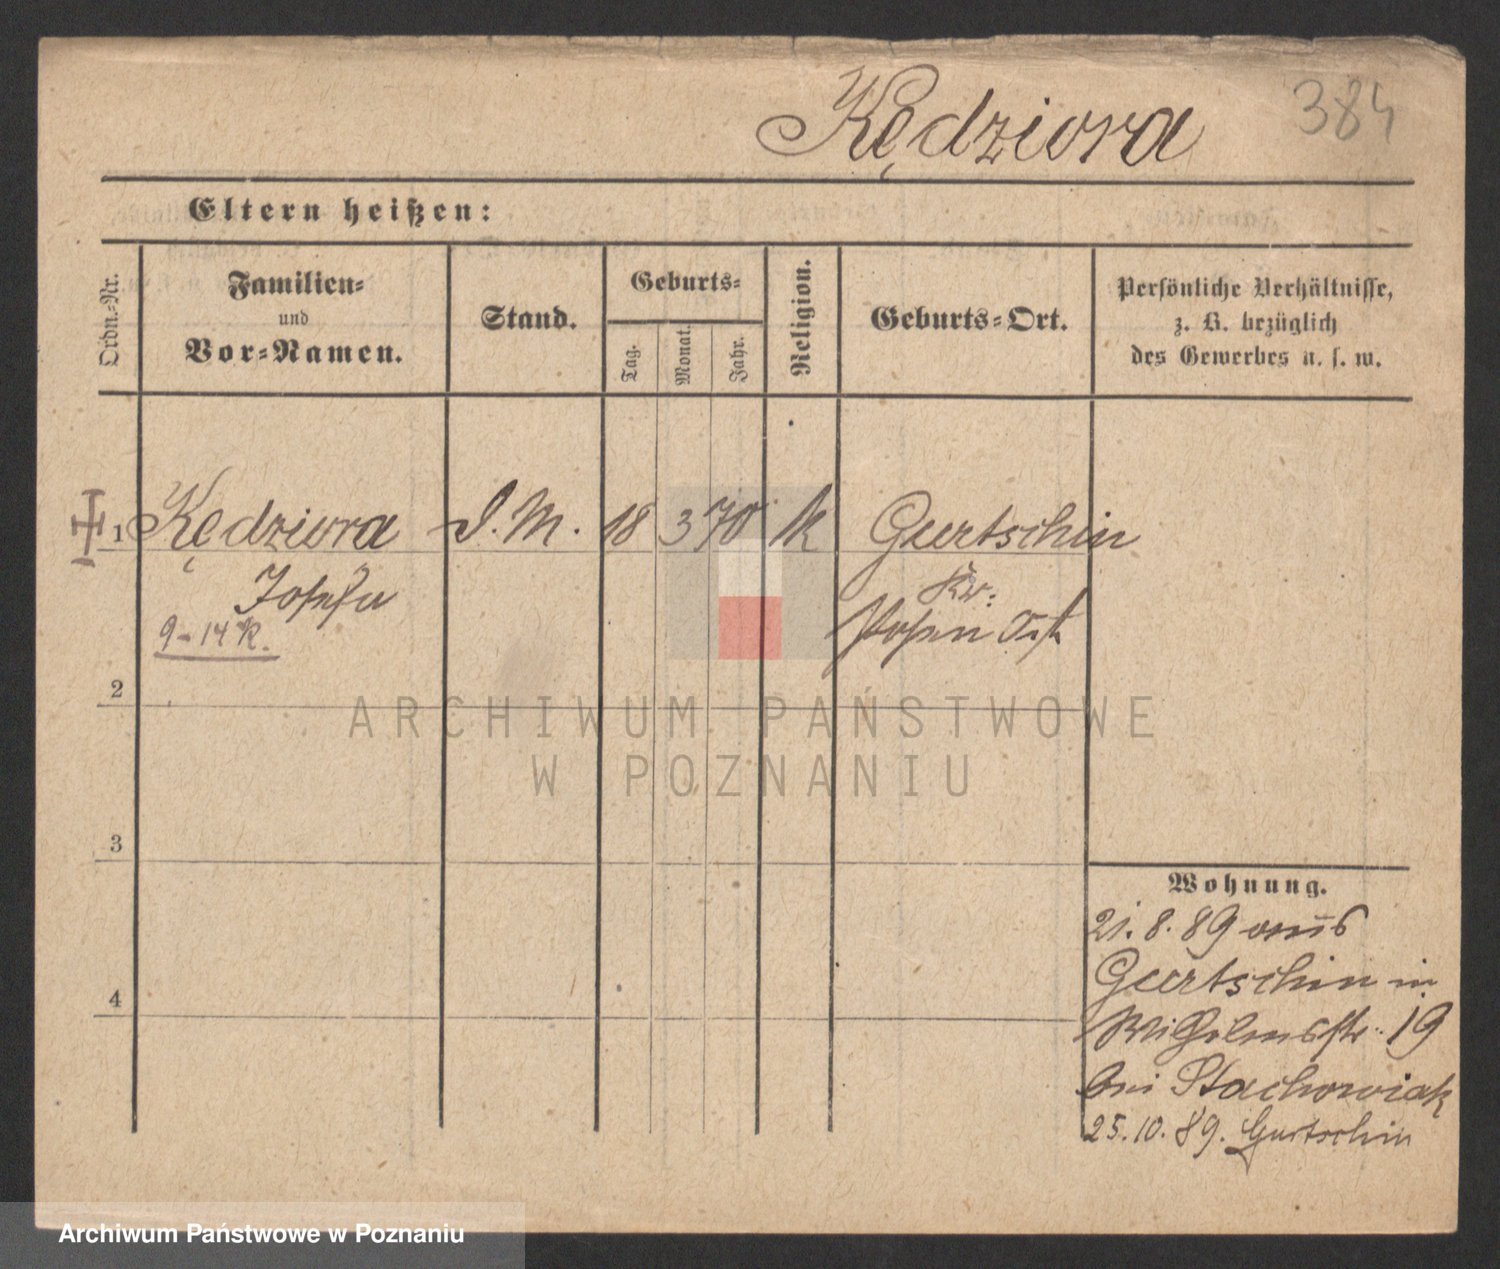 Kędziora 384
Eltern heißen:
Ordn.-Nr. Familien- und Vor-Namen. Stand. Geburts- Tag. Monat. Jahr. Religion. Geburts-Ort. Persönliche Verhältnisse,
z. B. bezüglich
des Gewerbes u. s. w.
1 Kędziora D. M. 18 3 70 k Guertschin
Josefa Kr.
9-14 K. Posen Ost
2
ARCHIWUM PAŃSTWOWE
W POZNANIU
3
Wohnung.
21. 8. 89 aus
Guertschin in
4
Wilhelmsstr. 19
bei Stachowiak
25. 10. 89. Gurtschin
Archiwum Państwowe w Poznaniu